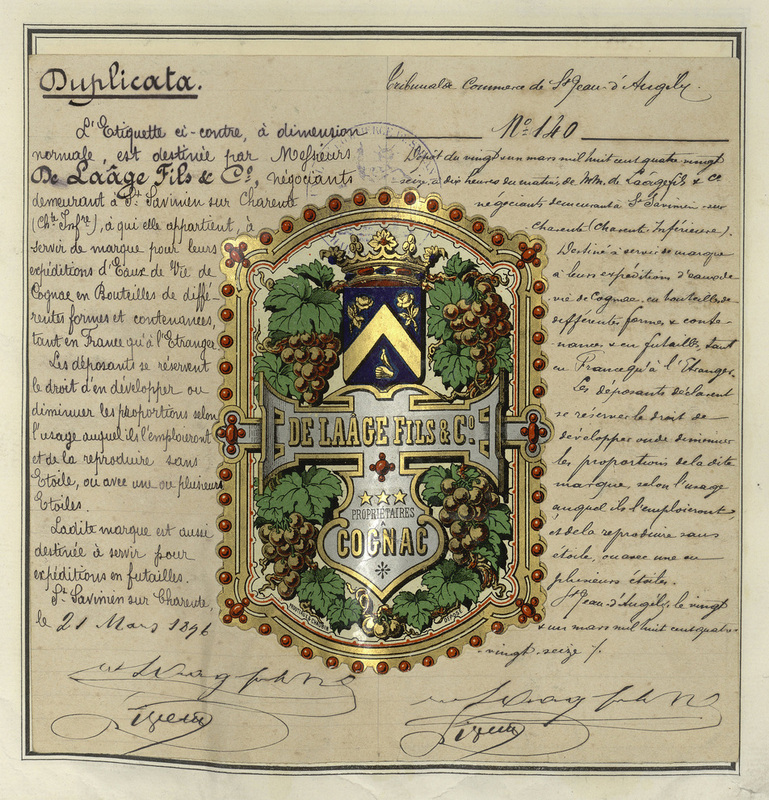 Duplicata.
L'Etiquette ci-contre, à dimension
normale, est destinée par Messieurs
De Laâge Fils & Cº, négociants
demeurant à St Savinien sur Charente
(Chte Infre), à qui elle appartient, à
servir de marque pour leurs
expéditions d'Eaux de Vie de
Cognac en Bouteilles de diffé-
rentes formes et contenances,
tant en France qu'à l'Etranger.
Les déposants se réservent
le droit d'en développer ou
diminuer les proportions selon
l'usage auquel ils l'emploieront
et de la reproduire sans
Etoile, ou avec une ou plusieurs
Etoiles.
Ladite marque est aussi
destinée à servir pour
expéditions en futailles.
St Savinien sur Charente,
le 21 Mars 1896
Tribunal de Commerce de St Jean-d'Angély.
Nº 140
Dépôt du vingt un mars mil huit cent quatre vingt
seize à dix heures du matin de MM. de Laâge fils & Cº
négociants demeurant à St Savinien sur
Charente (Charente Inférieure).
Destiné à servir de marque
à leurs expéditions d'eaux de
vie de Cognac en bouteilles de
différentes formes & conte-
nances & en futailles, tant
en France qu'à l'Etranger.
Les déposants déclarent
se réserver le droit de
développer ou de diminuer
les proportions de la dite
marque, selon l'usage
auquel ils l'emploieront
et de la reproduire sans
étoile, ou avec une ou
plusieurs étoiles.
St Jean-d'Angély, le vingt
& un mars mil huit cent quatre-
vingt-seize /.
DE LAÂGE FILS & Cº
PROPRIÉTAIRES
À
COGNAC